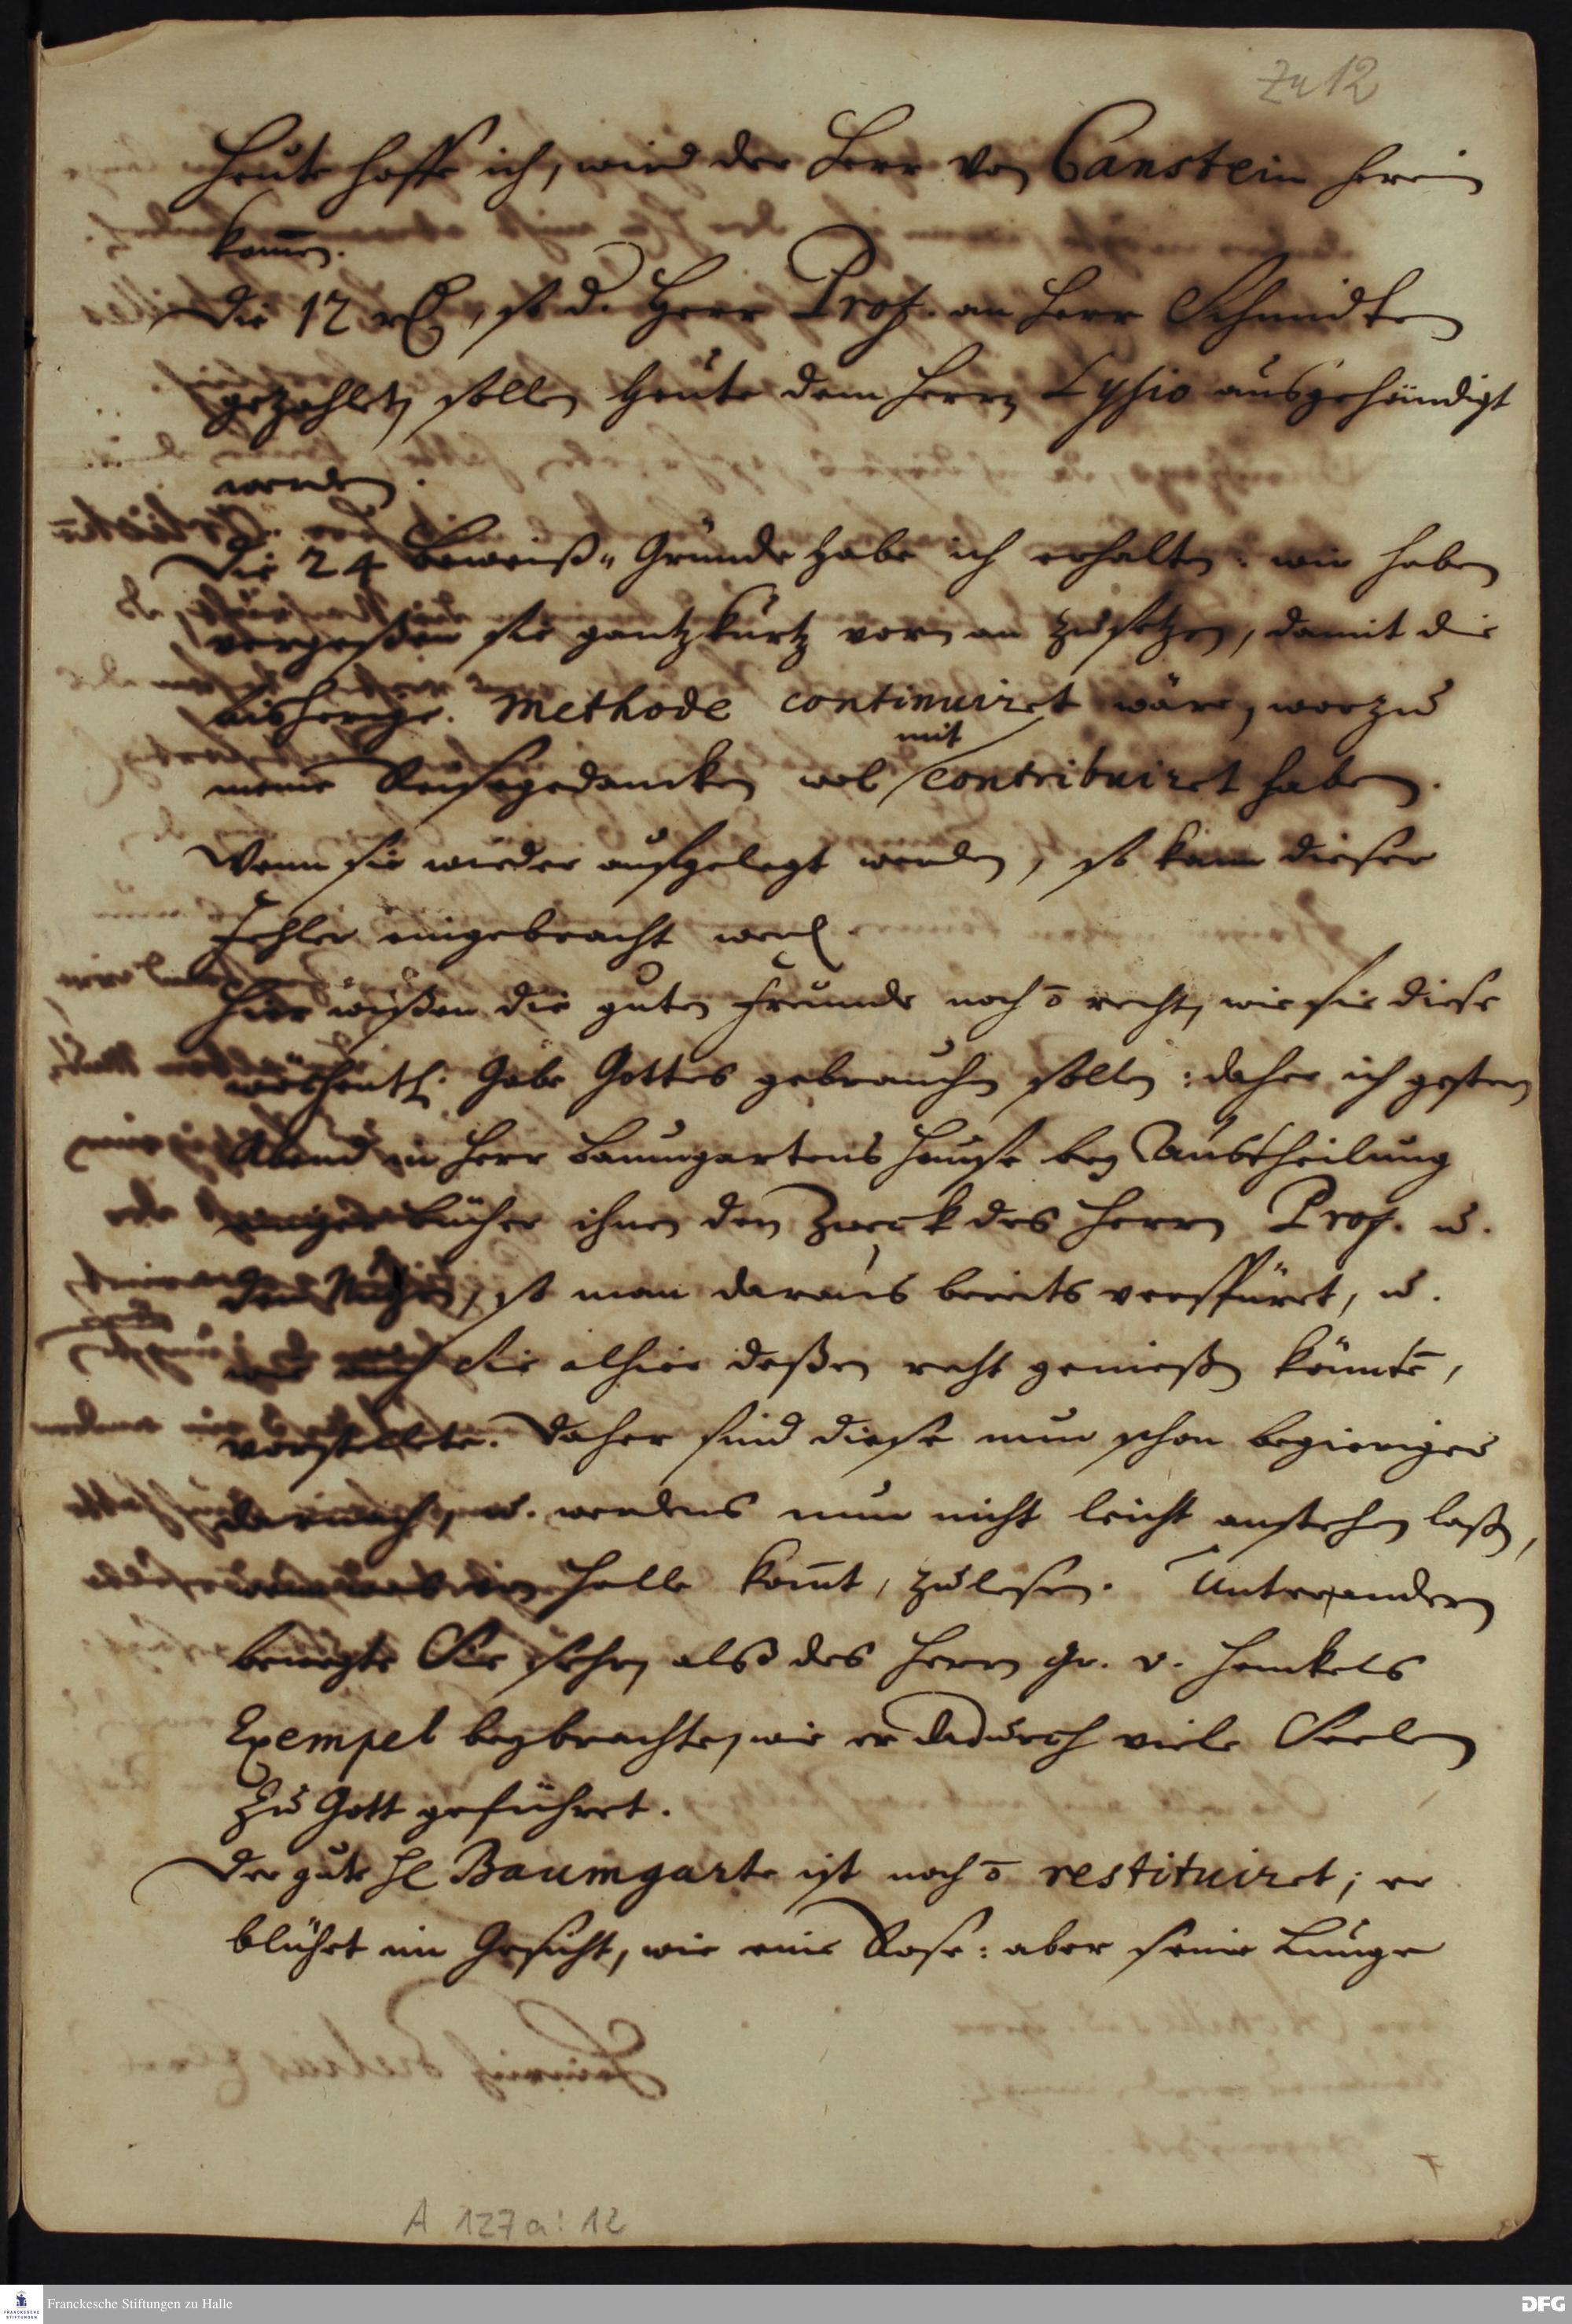 Zu 12
Heute hoffe ich, wird der Herr von Canstein herein
kom̅en.
Die 12 rℓ, so d. Herr Prof. an Herr Schmidten
gezahlet, sollen heute dem Herrn Lysio ausgehändigt
werden.
Die 24 Beweiß-Gründe habe ich erhalten: wir haben
vergeßen sie gantz kurtz vorn an zu setzen, damit die
bisherige Methode continuiret wäre, worzu
mit
meine Reisegedancken wol contribuiret haben.
Wenn sie wieder aufgelegt werden, so kan dieser
Fehler eingebracht werd.
Hier wißen die guten Freunde noch õ recht, wie sie diese
wöchentl. Gabe Gottes gebrauchen sollen: daher ich gestern
Abend in Herr Baumgartens Hause bey Austheilung
einiger bücher ihnen den Zweck des Herrn Prof. u.
den Nutzen, so man daraus bereits verspüret, u.
wie auch Sie alhier deßen recht genießen könntẽ,
vorstellete. Daher sind diese nun schon begieriger
darnach, u. werdens nun nicht leicht anstehen laßen,
was von Halle kom̅t, zu lesen. Unter andern
bewegte Sie sehr, alß des Herrn Gr. v. Henckels
Exempel beybrachte, wie er dadurch viele Seelen
zu Gott geführet.
Der gute H Baumgarte ist noch õ restituiret; er
blühet im Gesicht, wie eine Rose: aber seine Lunge
A 127a : 12
Franckesche Stiftungen zu Halle
FRANCKESCHE STIFTUNGEN
DFG